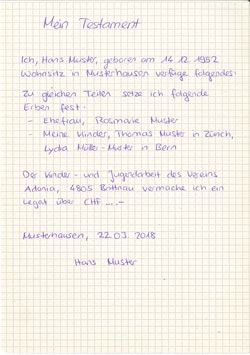 Mein Testament
Ich, Hans Muster, geboren am 14.12.1952
Wohnsitz in Musterhausen verfüge folgendes:
Zu gleichen Teilen setze ich folgende
Erben fest:
- Ehefrau, Rosmarie Muster
- Meine Kinder, Thomas Muster in Zürich,
Lydia Müller-Muster in Bern
Der Kinder- und Jugendarbeit des Vereins
Adonia, 4805 Brittnau vermache ich ein
Legat über CHF ....-
Musterhausen, 22.03.2018
Hans Muster